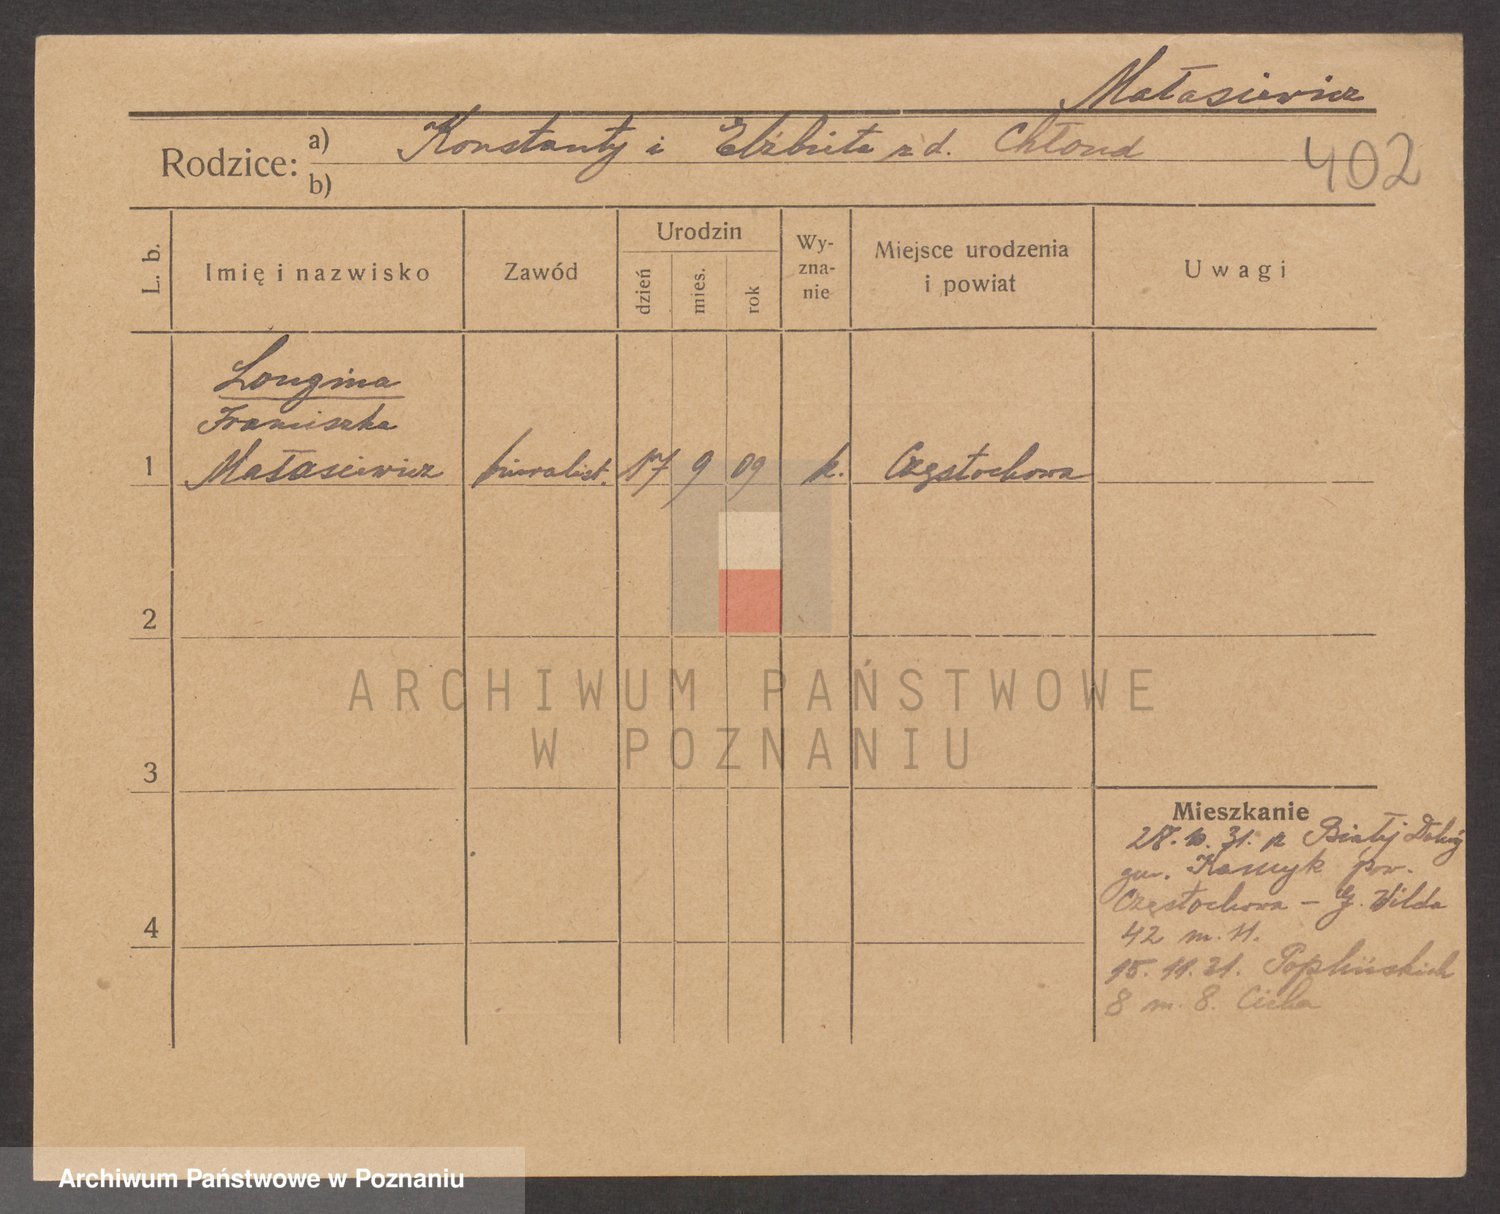 Małasiewicz
Rodzice: a) Konstanty i Elżbieta z d. Chłond
b)
402
L. b.
Imię i nazwisko
Zawód
Urodzin
dzień
mies.
rok
Wy-
zna-
nie
Miejsce urodzenia
i powiat
Uwagi
Longina
Franciszka
1 Małasiewicz biuralist. 17 9 09 k. Częstochowa
2
ARCHIWUM PAŃSTWOWE
W POZNANIU
3
Mieszkanie
28. 10. 31. z Białej
gm. Kamyk pow.
Częstochowa - G. Wilda
4
42 m. 11.
15. 11. 31.
8 m. 8. Cicha
Archiwum Państwowe w Poznaniu